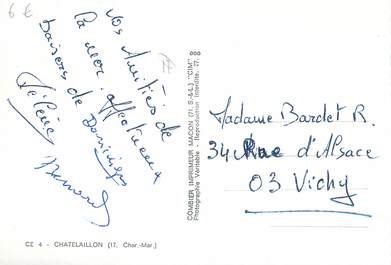 6 €
Nos Amitiés de
la mer. affectueux
baisers de Dominique
Hélène Bernard
COMBIER IMPRIMEUR MACON (71. S.-&-L.) "CIM"
Photographie Véritable - Reproduction interdite. 77.
Madame Bardet R.
34 Rue d'Alsace
03 Vichy
CE 4 - CHATELAILLON (17. Char.-Mar.)